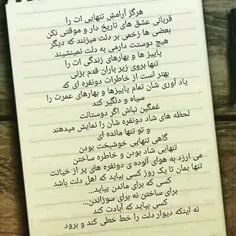 هرگز آرامش تنهایی ات را
قربانی عشق های تاریخ دار و موقتی نکن
بعضی ها زخمی بر دلت میزنند که دیگر
هیچ دوستت دارمی به دلت نمینشیند
پاییز ها و بهارهای زندگی ات را
تنها بروی زیر باران قدم بزنی
بهتر است از خاطرات دونفره ای که
یاد آوری شان تمام پاییزها و بهارهای عمرت را
سیاه و دلگیر کند
غمگین نباش اگر دوستانت
لحظه های شاد دونفره شان را نمایش میدهند
و تو تنها مانده ای
گاهی تنهایی خوشبخت بودن
تنهایی شاد بودن و خاطره ساختن
می ارزد به هوای آلوده ی دونفره های پر از خیانت
تنها بمان تا یک روز کسی بیاید که اهل دلت باشد
کسی که برای ماندن بیاید...
برای ساختن نه برای سوزاندن...
کسی بیاید که آبادت کند
نه اینکه دیوار دلت را خط خطی کند و برود